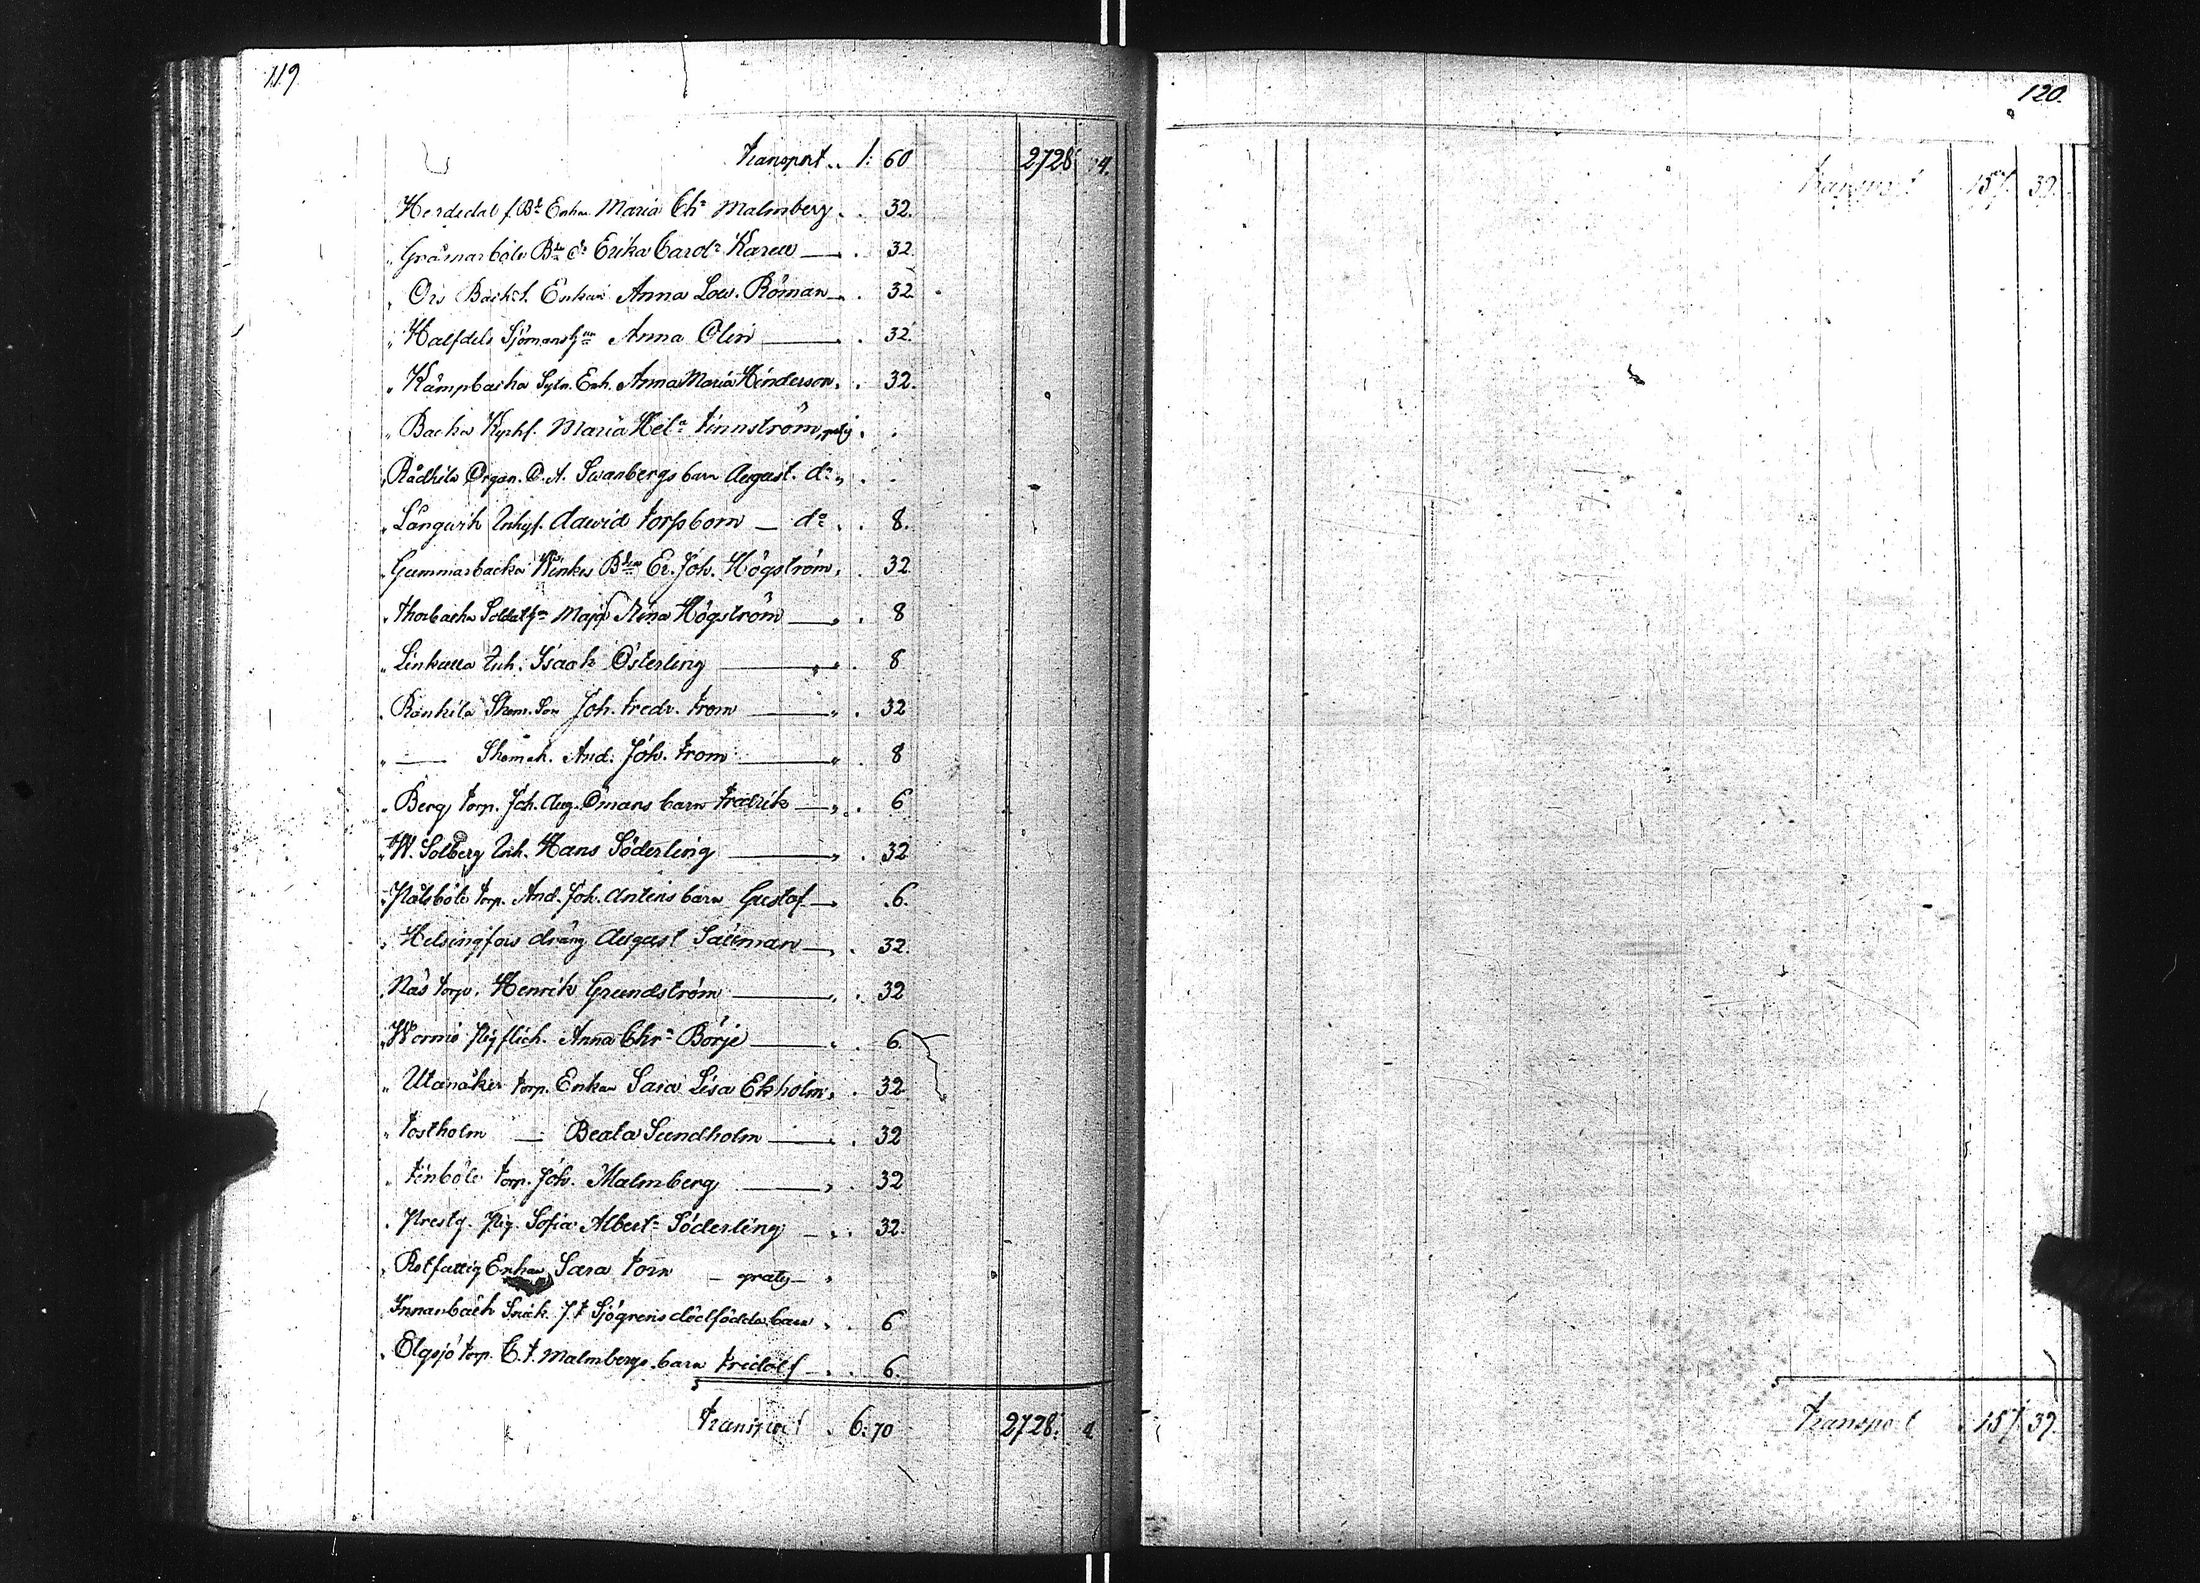 119.
Transport .. 1: 60 2728: 4.
Herdedal f. Bd. Enkan Maria Chr. Malmberg . . 32.
" Gråmarböle Bd. do Erika Carol. Karew — . 32.
" Ors Backst. Enkan Anna Lov. Röman — . 32
" Halfdels Sjömansh. Anna Olin — . 32.
" Kämpbacka Sytn. Enh. Anna Maria Hinderson . . 32.
" Backa Kyrkf. Maria Hel. Finnström, gratis . .
" Rådkila Organ. D. A. Swanbergs barn August. do " .
" Långwik Inhys. David Forssbom — do . . 8.
" Gummarbacka Winkes Bd. Er. Joh. Högström . . 32
" Thorbacka Soldath. Maja Stina Högström — . 8
" Linkulla Inh. Isaak Österling — " . 8
" Rankila Skom. Son Joh. Fredr. From — " . 32
" — Skomak. And. Joh. From — " . 8
" Berg Torp. Joh. Aug. Ömans barn Fredrik — " . 6
" W. Solberg Inh. Hans Söderling — " . 32
" Pålsböle Torp. And. Joh. Anténs barn Gustaf — . 6.
" Helsingfors dräng August Sallman — . 32.
" Näs Torp. Henrik Grundström — " . 32
" Wormö Pigflick. Anna Chr. Börje — . . 6.
" Utanåker Torp. Enkan Sara Lisa Ekholm . . 32
" Tostholm — Beata Sundholm — . . 32
" Finböle Torp. Joh. Malmberg — " . 32
" Prestg. Pig. Sofia Albert. Söderling — . . 32.
" Rotfattig Enkan Sara Torn — gratis — "
" Innanbäck Snick. J. F. Sjögrens dödfödda barn " . 6
" Elgsjö Torp. C. F. Malmbergs barn Fridolf — . . 6.
Transport . 6: 70 2728: 4
120.
Transport 157. 39.
Transport 157. 39.